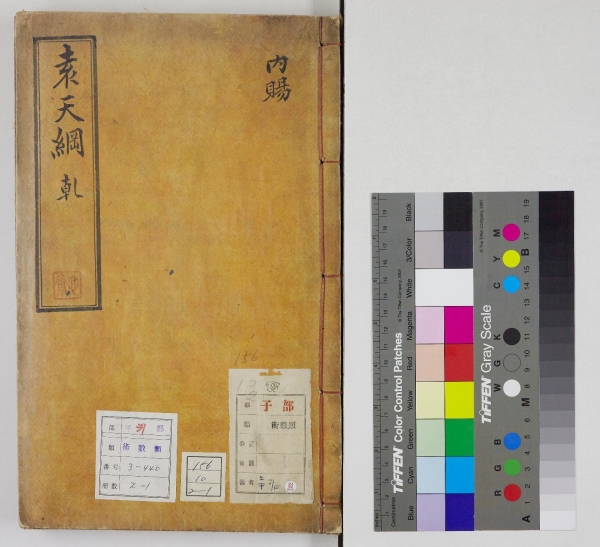 袁天綱 乹
內賜
156
子 部
部
類 術數類
部
類 術數類
番号 3-445
冊数 2-1
156
10
2-1
TIFFEN Color Control Patches
Blue
Cyan
Green
Yellow
Red
Magenta
White
3/Color
Black
© The Tiffen Company, 2007
TIFFEN Gray Scale
© The Tiffen Company, 2007
R G B
W G K
C Y M
A 1 2 3 4 5 6 M 8 9 10 11 12 13 14 15 B 17 18 19